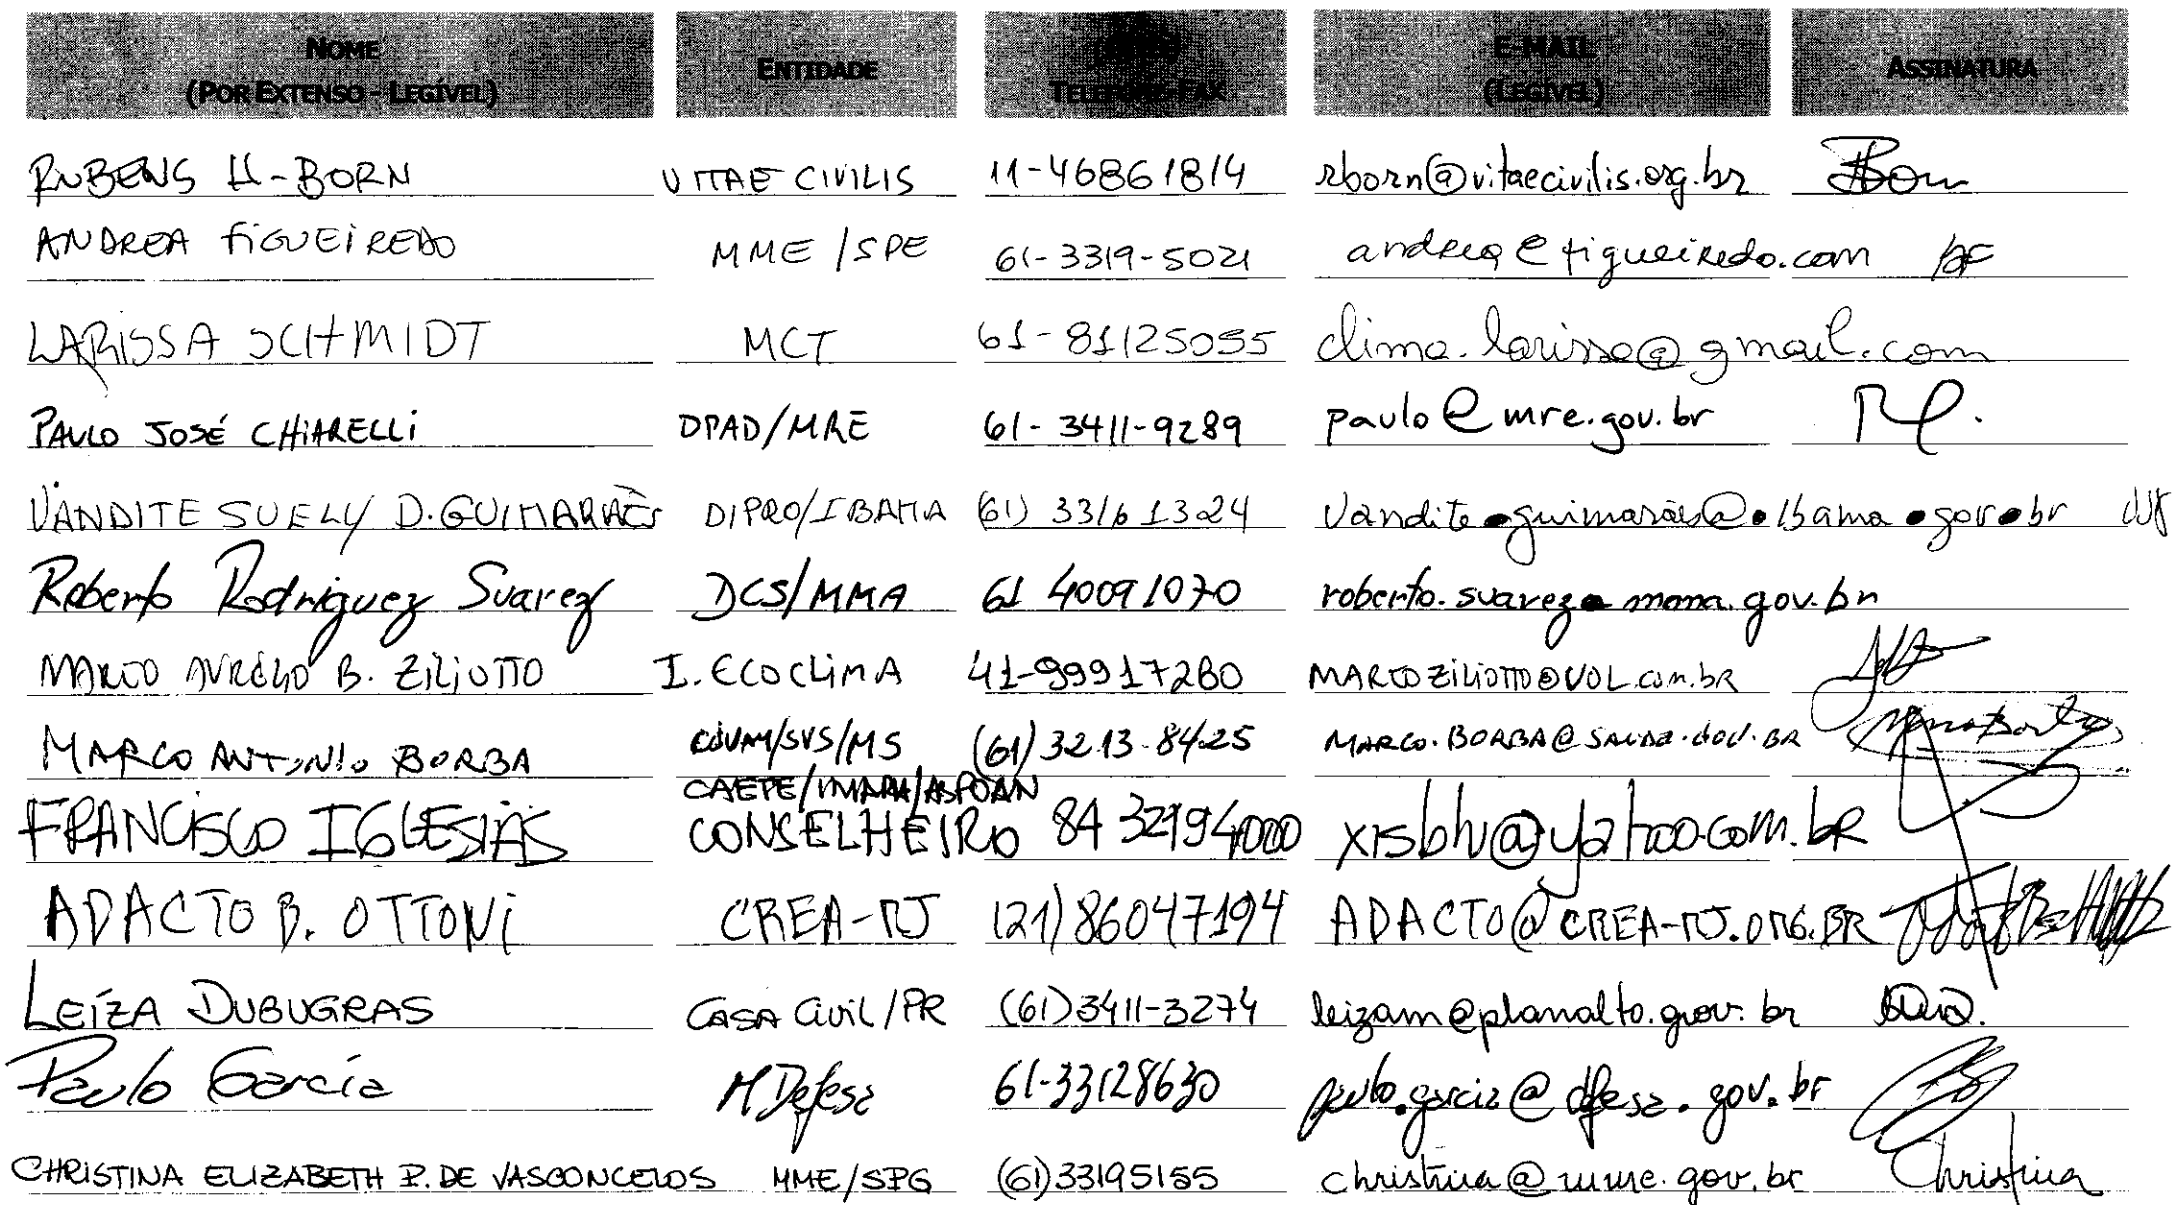 NOME
(POR EXTENSO - LEGÍVEL)
ENTIDADE
TELEFONE-FAX
E-MAIL
(LEGÍVEL)
ASSINATURA
RUBENS H-BORN VITAE CIVILIS 11-46861814 rborn@vitaecivilis.org.br Born
ANDREA FIGUEIREDO MME/SPE 61-3319-5021 andrea@figueiredo.com AF
LARISSA SCHMIDT MCT 61-81125055 clima.larissa@gmail.com
PAULO JOSÉ CHIARELLI DPAD/MRE 61-3411-9289 paulo@mre.gov.br
VANDITE SUELY D. GUIMARÃES DIPRO/IBAMA (61) 33161324
Roberto Rodriguez Suarez DCS/MMA 61 40091070 roberto.suarez@mma.gov.br
MARCO AURÉLIO B. ZILIOTTO I. ECOCLIMA 41-99917260 MARCOZILIOTTO@UOL.com.br
MARCO ANTONIO BORBA /SVS/MS (61) 3213-8425 MARCO.BORBA@SAUDE.GOV.BR
FRANCISCO IGLESIAS CONSELHEIRO 84 32194000 xisbh@yahoo.com.bR
ADACTO B. OTTONI CREA-RJ (21) 86047194 ADACTO@CREA-RJ.ORG.BR
LEÍZA DUBUGRAS CASA CIVIL/PR (61)3411-3274 leizam@planalto.gov.br
Paulo Garcia M Defesa 61-33128630 paulo.garcia@defesa.gov.br
CHRISTINA ELIZABETH P. DE VASCONCELOS MME/SPG (61)33195155 christina@mme.gov.br Christina